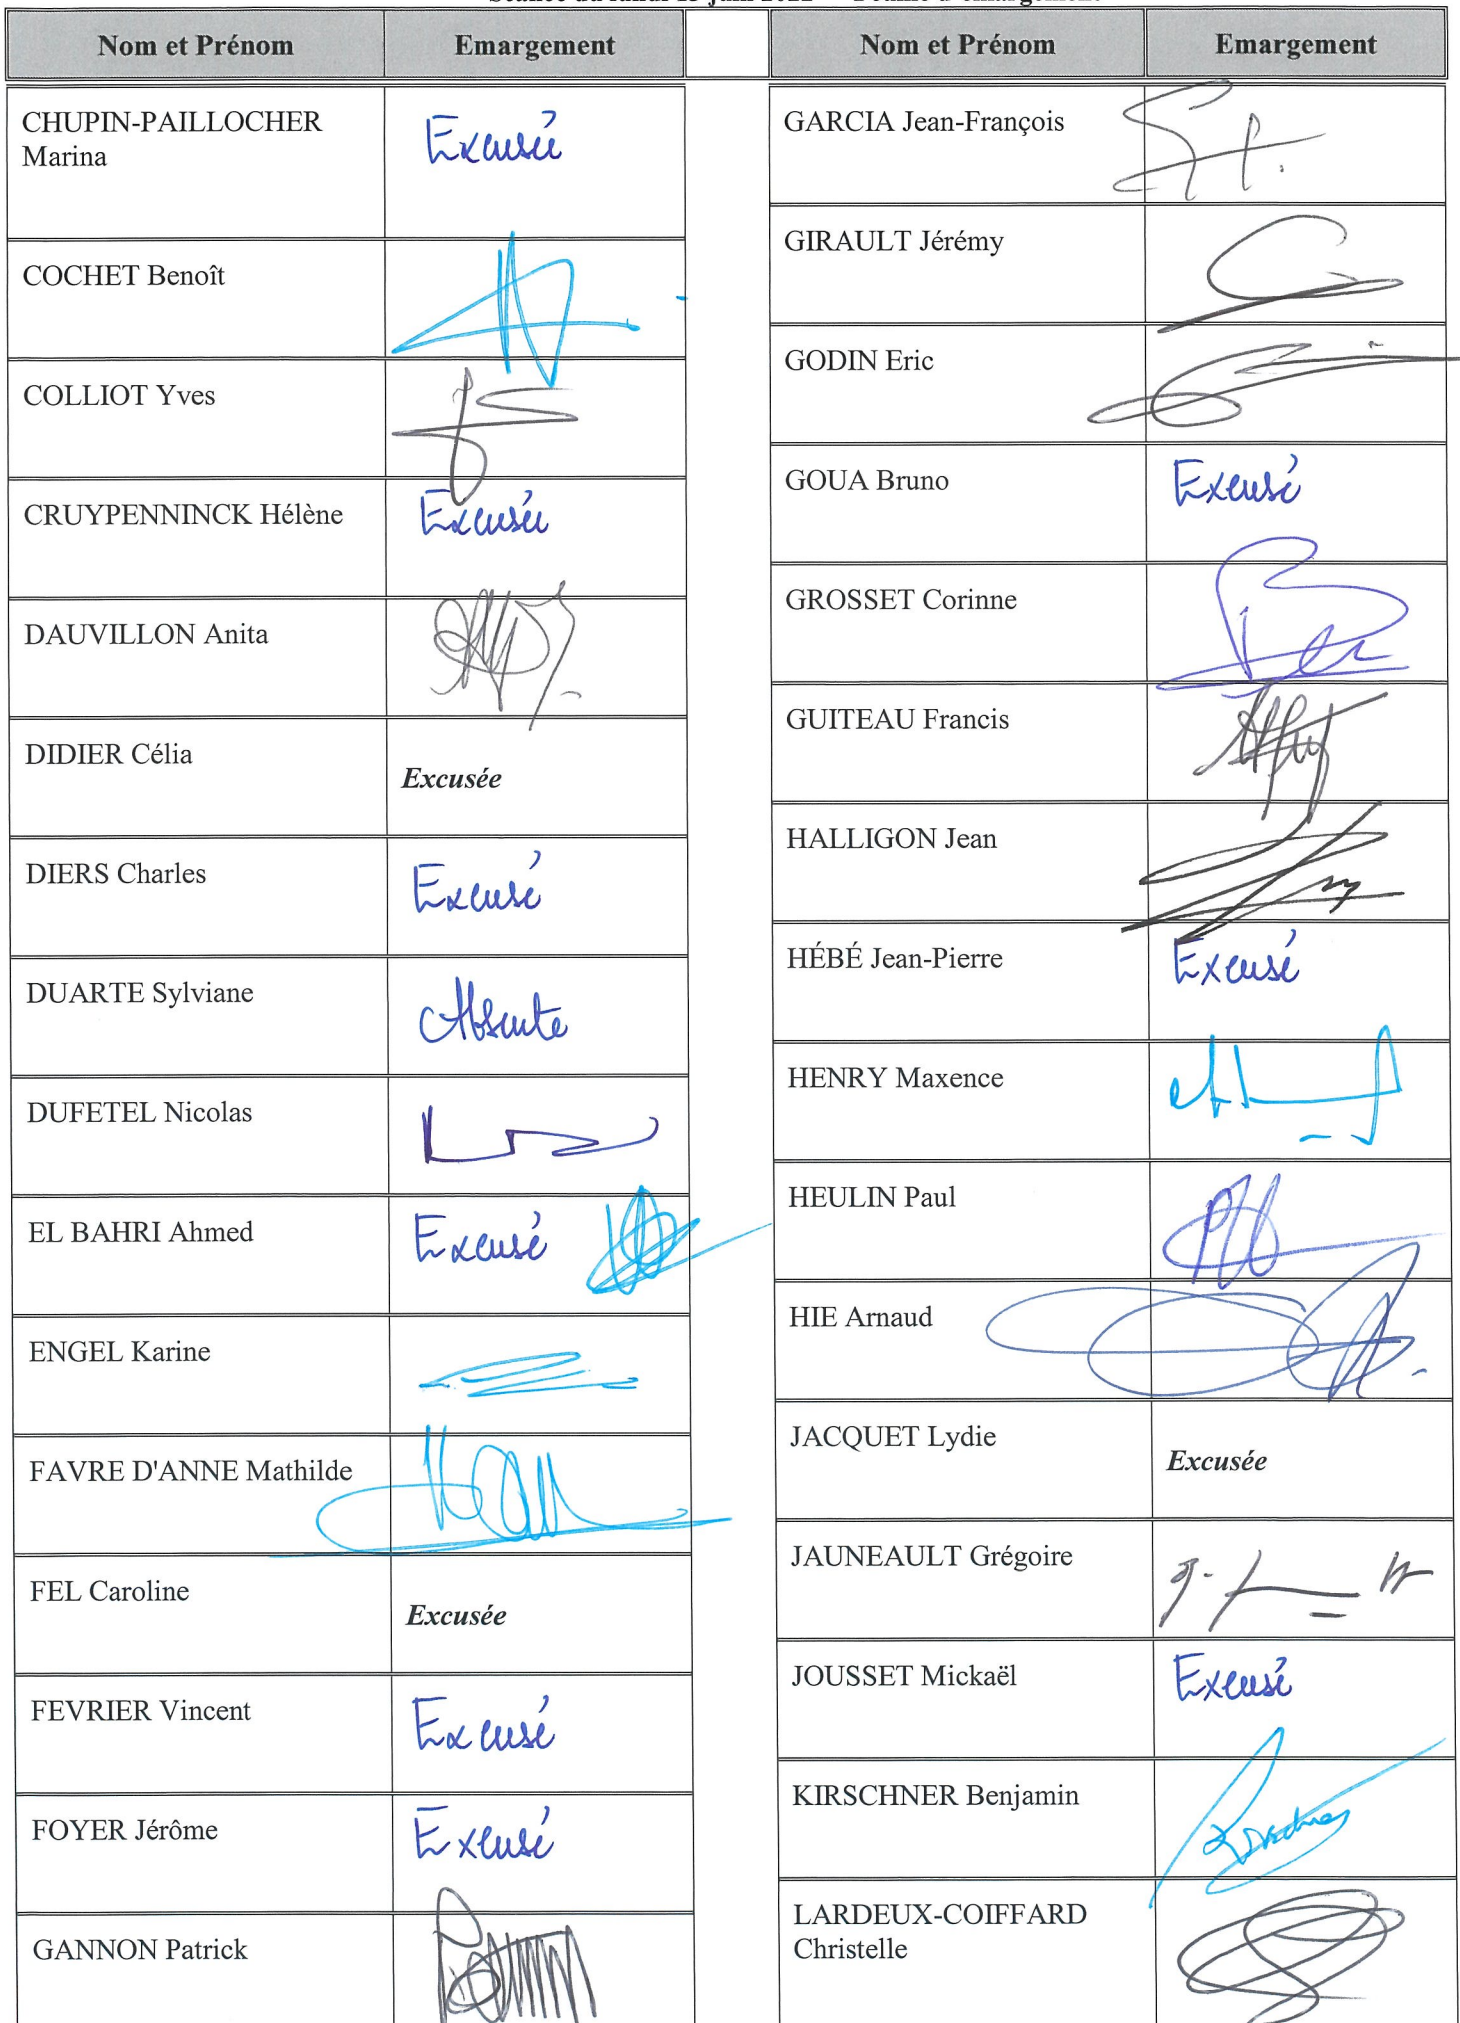 Nom et Prénom Emargement
CHUPIN-PAILLOCHER
Marina
Excusée
COCHET Benoît
COLLIOT Yves
CRUYPENNINCK Hélène Excusée
DAUVILLON Anita
DIDIER Célia
Excusée
DIERS Charles Excusé
DUARTE Sylviane Absente
DUFETEL Nicolas
EL BAHRI Ahmed Excusé
ENGEL Karine
FAVRE D'ANNE Mathilde
FEL Caroline
Excusée
FEVRIER Vincent Excusé
FOYER Jérôme Excusé
GANNON Patrick
Nom et Prénom Emargement
GARCIA Jean-François
GIRAULT Jérémy
GODIN Eric
GOUA Bruno Excusé
GROSSET Corinne
GUITEAU Francis
HALLIGON Jean
HÉBÉ Jean-Pierre Excusé
HENRY Maxence
HEULIN Paul
HIE Arnaud
JACQUET Lydie
Excusée
JAUNEAULT Grégoire
JOUSSET Mickaël Excusé
KIRSCHNER Benjamin
LARDEUX-COIFFARD
Christelle